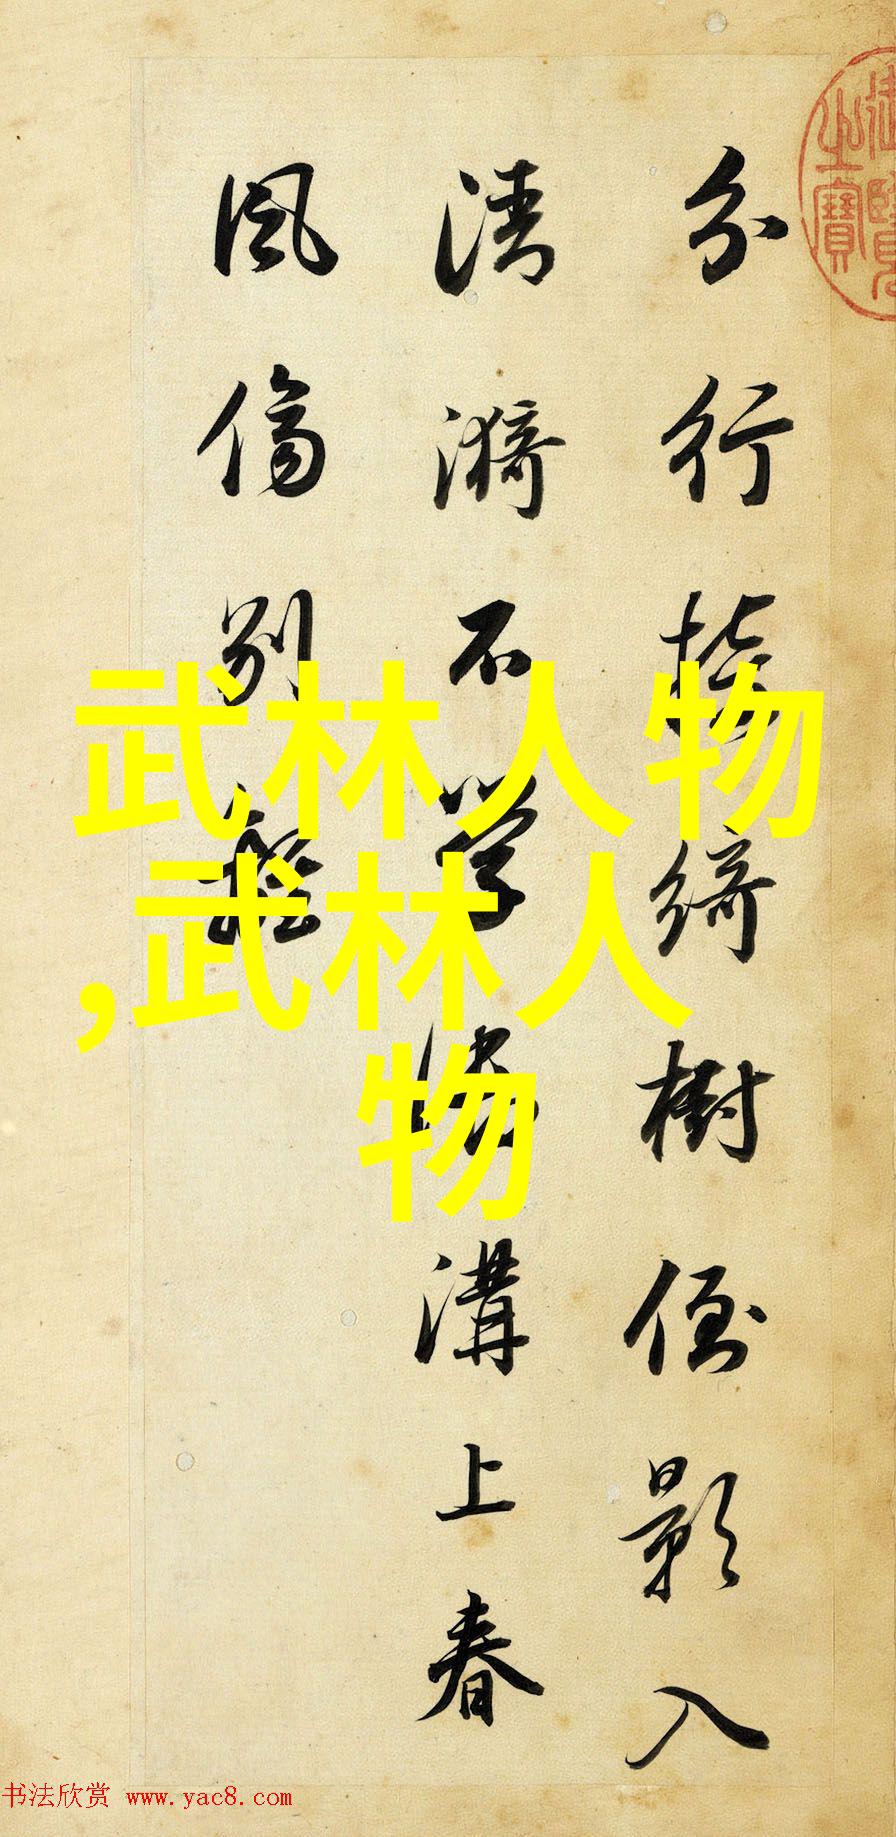 分行接綺樹倒影入
清漪不學御溝上春
風傷別離
武林人物
,武林人
物
書法欣賞 www.yac8.com